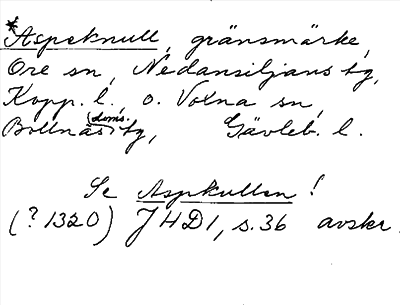 *Aspeknull, gränsmärke,
Ore sn, Nedansiljans tg,
Kopp. l., o. Voxna sn,
Bollnäs (doms.) tg, Gävleb. l.
Se Aspkullen!
(?1320) JHD1, s.36 avskr.